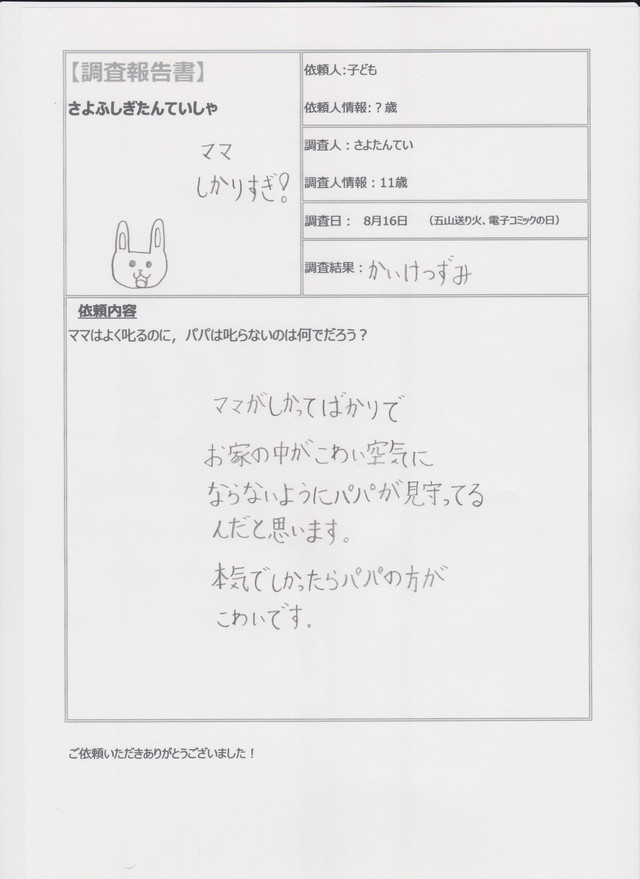 【調査報告書】
さよふしぎたんていしゃ
ママ
しかりすぎ!
依頼人:子ども
依頼人情報:？歳
調査人：さよたんてい
調査人情報：11歳
調査日： 8月16日 （五山送り火、電子コミックの日）
調査結果：かいけつずみ
依頼内容
ママはよく叱るのに，パパは叱らないのは何でだろう？
ママがしかってばかりで
お家の中がこわい空気に
ならないようにパパが見守ってる
んだと思います。
本気でしかったらパパの方が
こわいです。
ご依頼いただきありがとうございました！